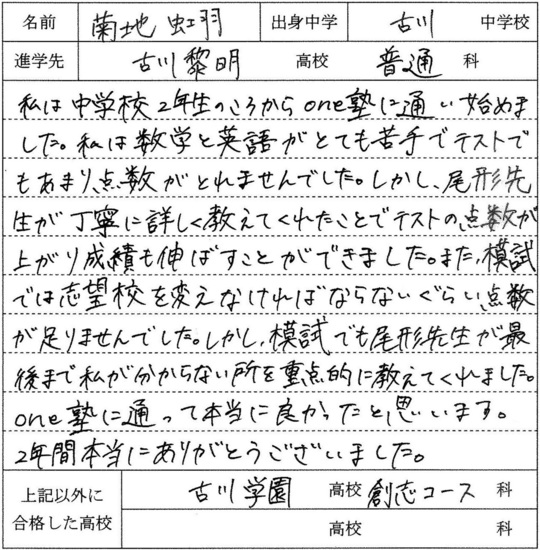 名前 菊地 虹羽 出身中学 古川 中学校
進学先 古川黎明 高校 普通 科
私は中学校2年生のころからone塾に通い始めま
した。私は数学と英語がとても苦手でテストで
もあまり点数がとれませんでした。しかし、尾形先
生が丁寧に詳しく教えてくれたことでテストの点数が
上がり成績も伸ばすことができました。また、模試
では志望校を変えなければならないぐらい点数
が足りませんでした。しかし、模試でも尾形先生が最
後まで私が分からない所を重点的に教えてくれました。
one塾に通って本当に良かったと思います。
2年間本当にありがとうございました。
上記以外に
合格した高校
古川学園 高校 創志コース 科
高校 科